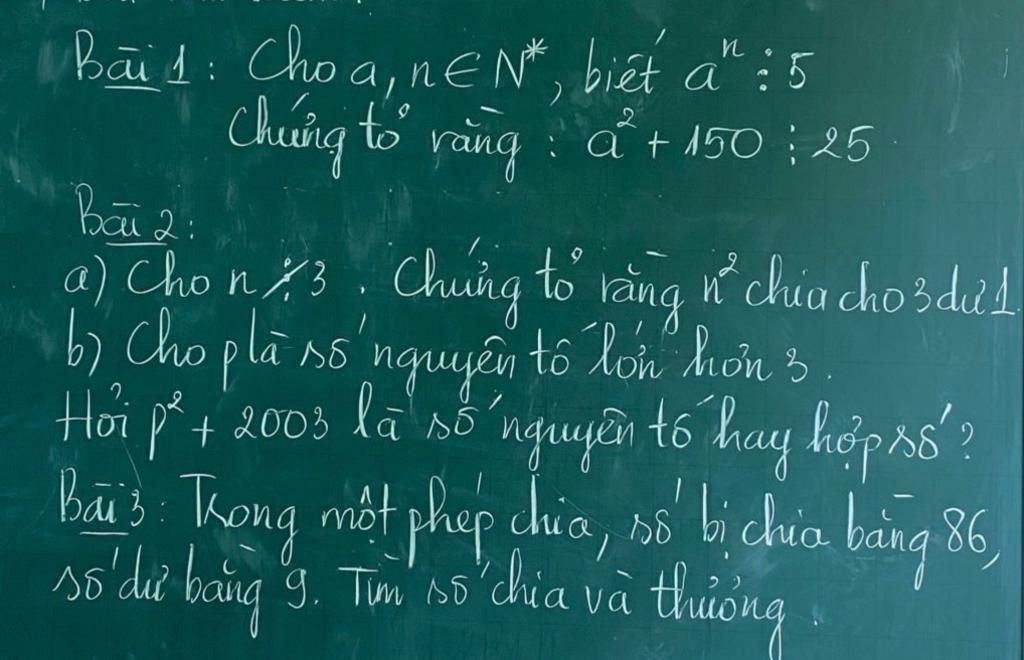 Bài 1: Cho a, n ∈ N*, biết aⁿ ⋮ 5
Chứng tỏ rằng: a² + 150 ⋮ 25
Bài 2:
a) Cho n ⋮̸ 3. Chứng tỏ rằng n² chia cho 3 dư 1.
b) Cho p là số nguyên tố lớn hơn 3.
Hỏi p² + 2003 là số nguyên tố hay hợp số?
Bài 3: Trong một phép chia, số bị chia bằng 86,
số dư bằng 9. Tìm số chia và thương.